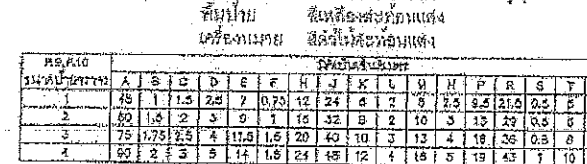 พื้นป้าย สีเหลืองสะท้อนแสง
เครื่องหมาย สีดำไม่สะท้อนแสง
ขนาดป้ายจราจร
A B C D E F H J K L M N P R S T
1 45 1 1.5 2.5 7 0.75 12 24 6 2 8 2.5 9.5 21.5 0.5 5
2 60 1.5 2 3 9 1 16 32 8 2 10 3 13 29 0.5 6
3 75 1.75 2.5 4 11.5 1.5 20 40 10 3 13 4 16 36 0.8 8
4 90 2 3 5 14 1.5 24 48 12 4 16 5 19 43 1 10